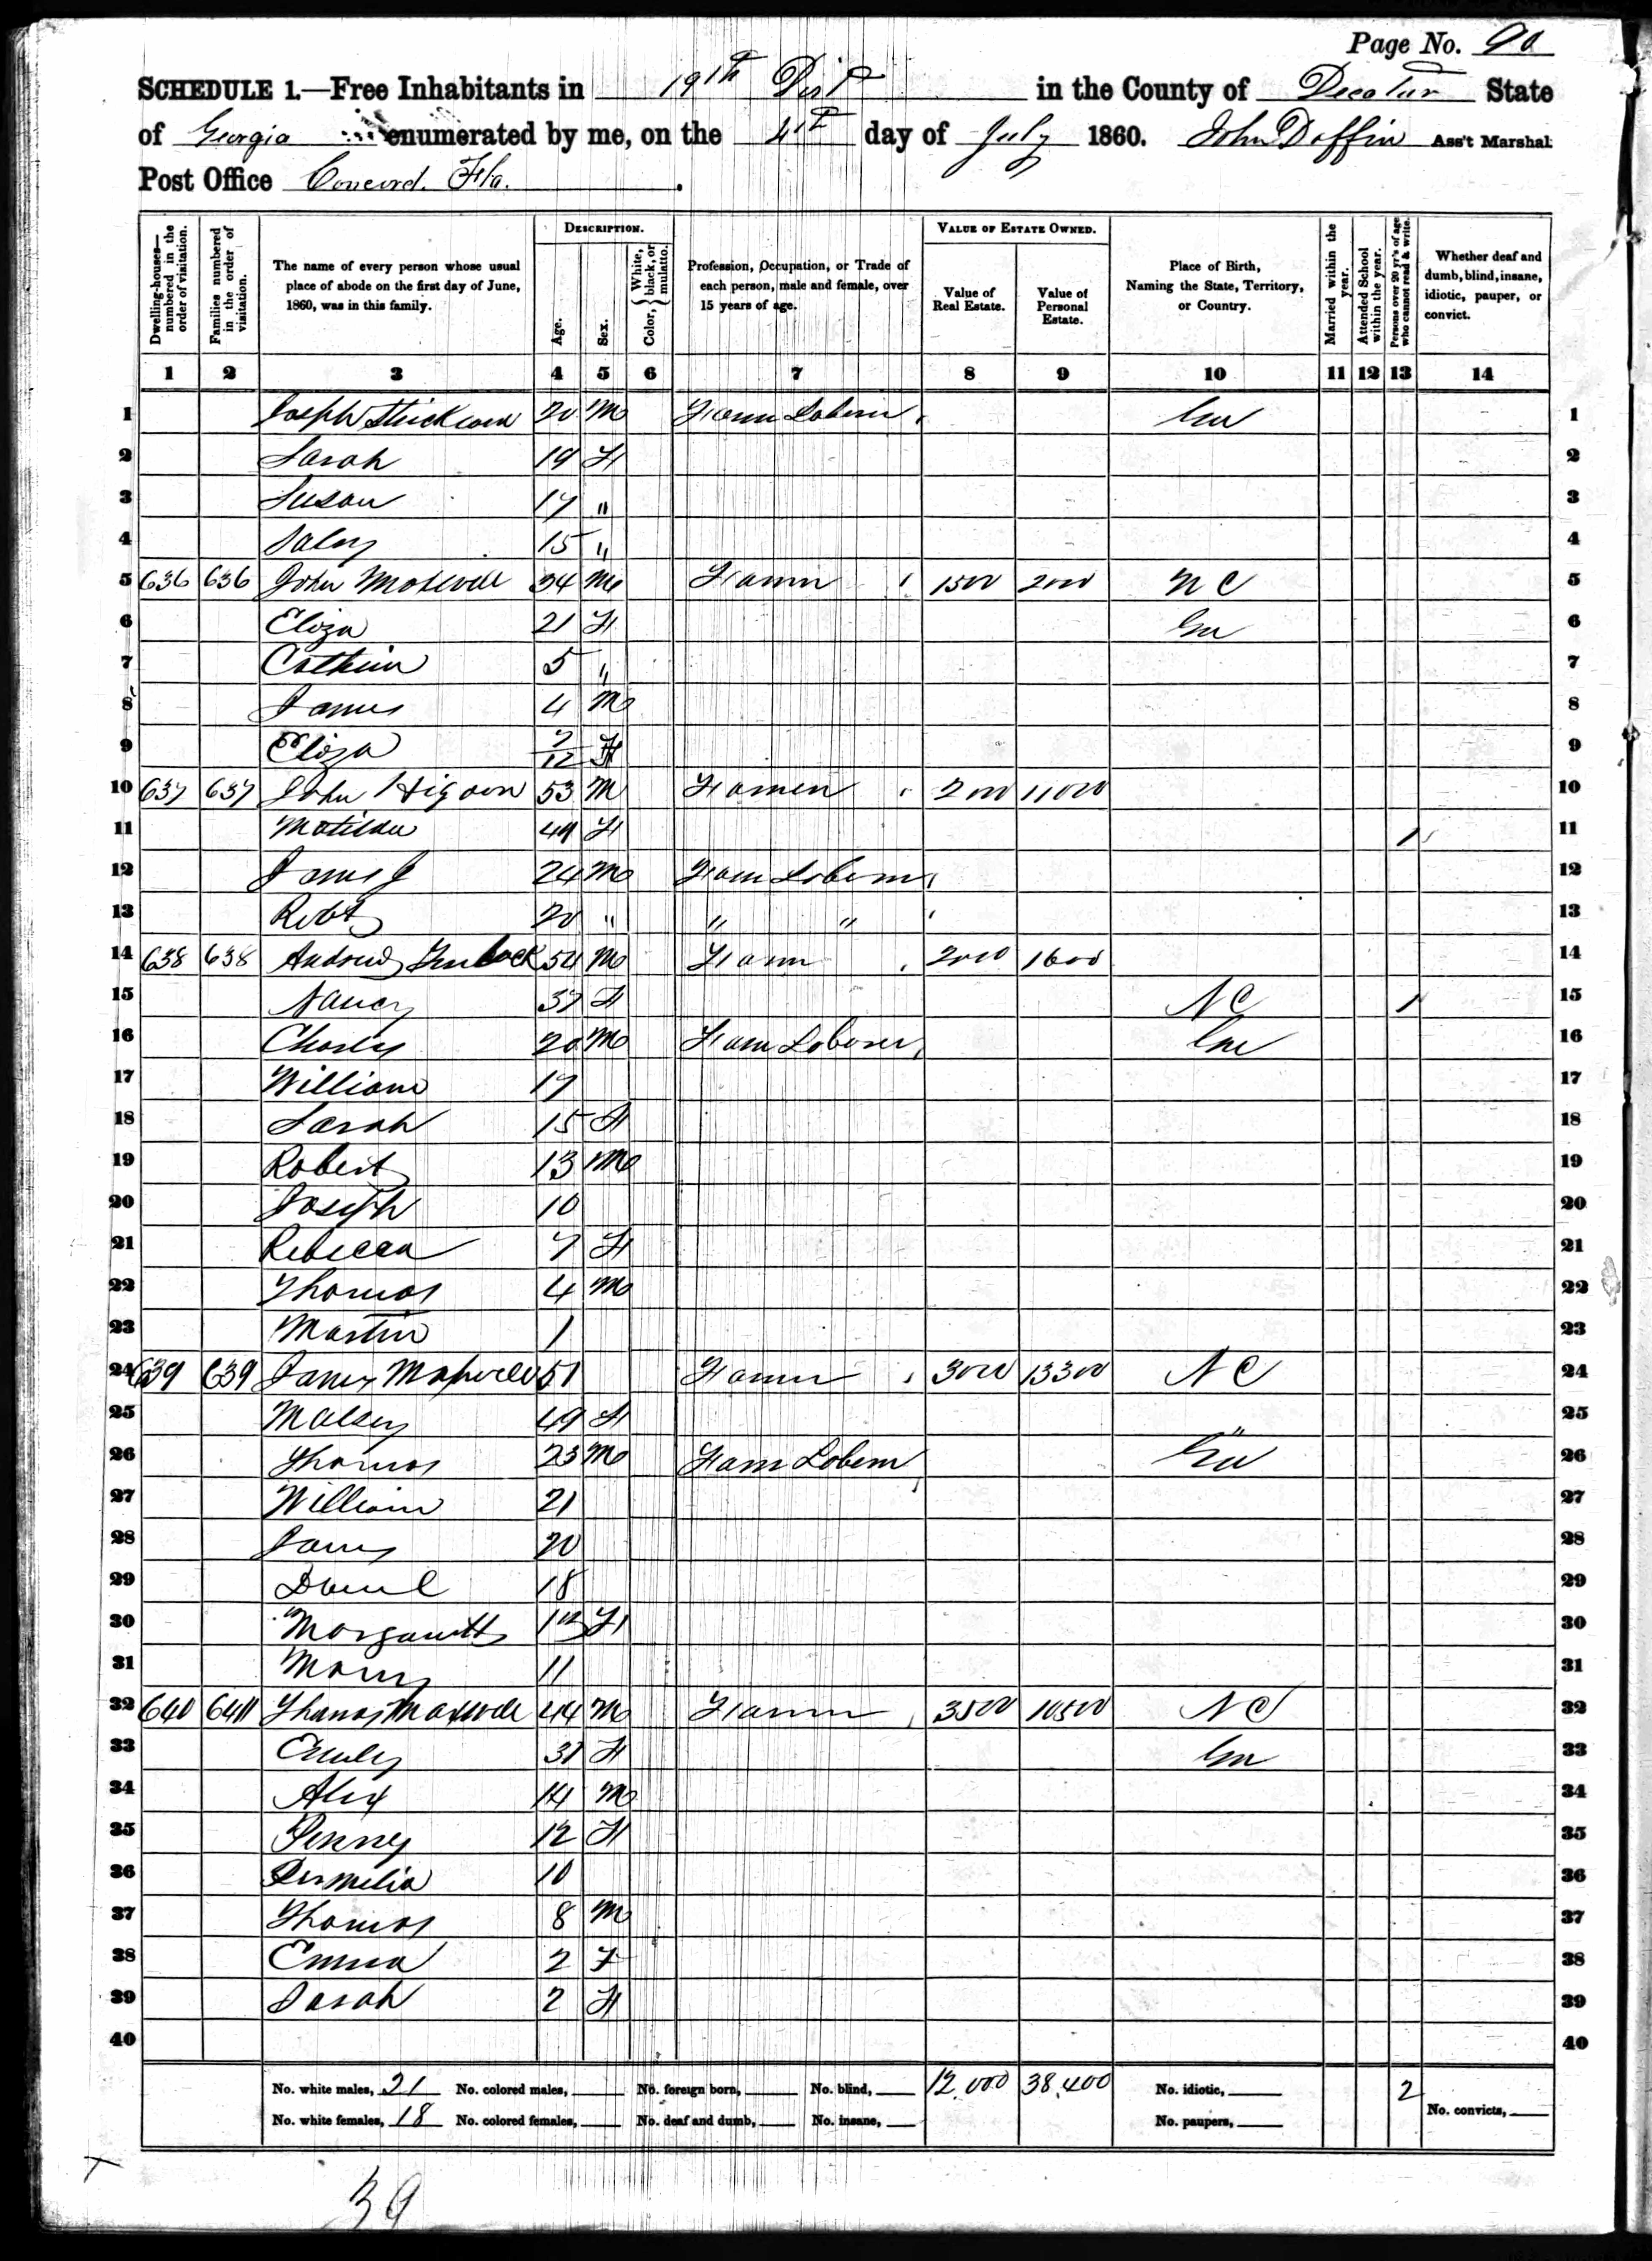 Page No. 90
SCHEDULE 1.—Free Inhabitants in 19th Dist in the County of Decatur State
of Georgia enumerated by me, on the 4th day of July 1860. John Daffin Ass't Marshal
Post Office Concord. Fla.
Dwelling-houses—numbered in the order of visitation.
Families numbered in the order of visitation.
The name of every person whose usual place of abode on the first day of June, 1860, was in this family.
DESCRIPTION.
Age.
Sex.
Color, { White, black, or mulatto.
Profession, Occupation, or Trade of each person, male and female, over 15 years of age.
VALUE OF ESTATE OWNED.
Value of Real Estate.
Value of Personal Estate.
Place of Birth, Naming the State, Territory, or Country.
Married within the year.
Attended School within the year.
Persons over 20 yr's of age who cannot read & write.
Whether deaf and dumb, blind, insane, idiotic, pauper, or convict.
1 2 3 4 5 6 7 8 9 10 11 12 13 14
1 Joseph 20 M Farm Laborer Geo 1
2 Sarah 19 F 2
3 Susan 17 " 3
4 15 " 4
5 636 636 John Maxwell 34 M Farmer 1500 2000 N C 5
6 Eliza 21 F Geo 6
7 5 " 7
8 James 4 M 8
9 Eliza F 9
10 637 637 John Higdon 53 M Farmer 2000 11000 10
11 Matilda 49 F 1 11
12 James J 24 M Farm Laborer 12
13 Robt 20 " " " 13
14 638 638 Andrew 54 M Farmer 2000 1600 14
15 Nancy 37 F N C 1 15
16 Charles 20 M Farm Laborer Geo 16
17 William 17 17
18 Sarah 15 F 18
19 Robert 13 M 19
20 Joseph 10 20
21 Rebecca 7 F 21
22 Thomas 4 M 22
23 Martin 1 23
24 639 639 James Maxwell 51 Farmer 3000 13300 N C 24
25 49 F " 25
26 Thomas 23 M Farm Laborer Geo 26
27 William 21 27
28 James 20 28
29 Daniel 18 29
30 Margarett F 30
31 Mary 11 31
32 640 640 Thomas Maxwell 44 M Farmer 3500 10500 N C 32
33 Emily 31 F Geo 33
34 Alex 14 M 34
35 Penney 12 F 35
36 Permelia 10 36
37 Thomas 8 M 37
38 Emma 2 F 38
39 Sarah 2 F 39
40 40
No. white males, 21 No. colored males, No. foreign born, No. blind, 12,000 38,400 No. idiotic, 2
No. white females, 18 No. colored females, No. deaf and dumb, No. insane, No. paupers, No. convicts,
39